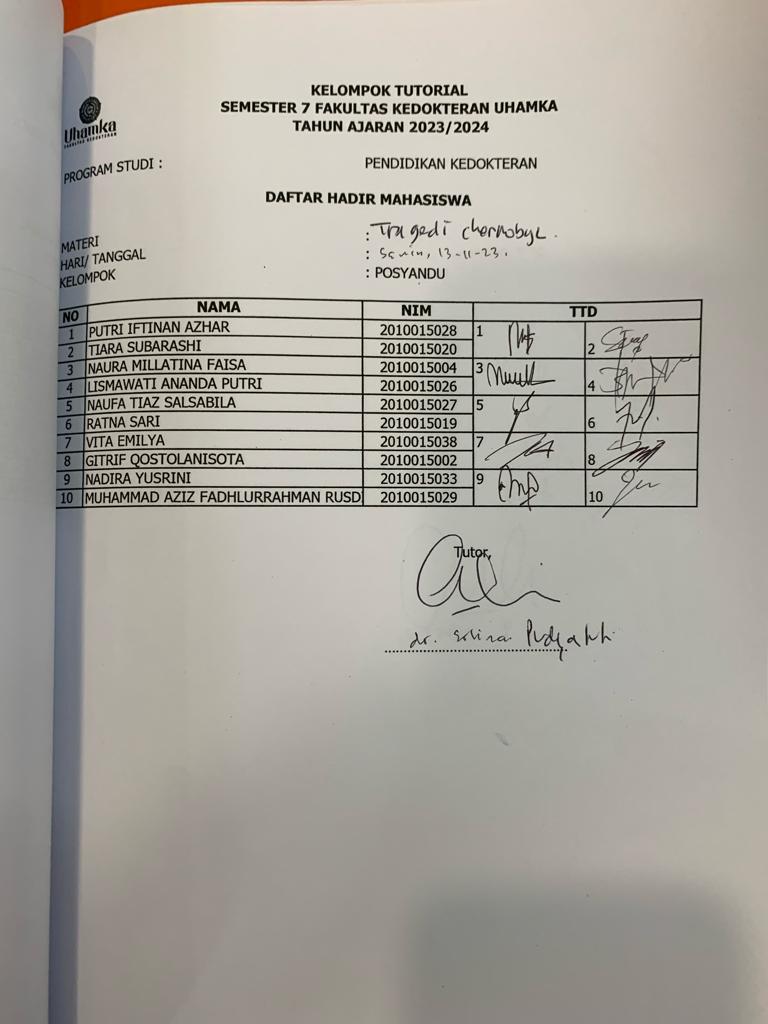 KELOMPOK TUTORIAL
SEMESTER 7 FAKULTAS KEDOKTERAN UHAMKA
TAHUN AJARAN 2023/2024
Uhamka
FAKULTAS KEDOKTERAN
PROGRAM STUDI : PENDIDIKAN KEDOKTERAN
DAFTAR HADIR MAHASISWA
MATERI : Tragedi chernobyl.
HARI/ TANGGAL : Senin, 13-11-23.
KELOMPOK : POSYANDU
NO NAMA NIM TTD
1 PUTRI IFTINAN AZHAR 2010015028 1
2 TIARA SUBARASHI 2010015020 2
3 NAURA MILLATINA FAISA 2010015004 3
4 LISMAWATI ANANDA PUTRI 2010015026 4
5 NAUFA TIAZ SALSABILA 2010015027 5
6 RATNA SARI 2010015019 6
7 VITA EMILYA 2010015038 7
8 GITRIF QOSTOLANISOTA 2010015002 8
9 NADIRA YUSRINI 2010015033 9
10 MUHAMMAD AZIZ FADHLURRAHMAN RUSD 2010015029 10
Tutor,
dr.